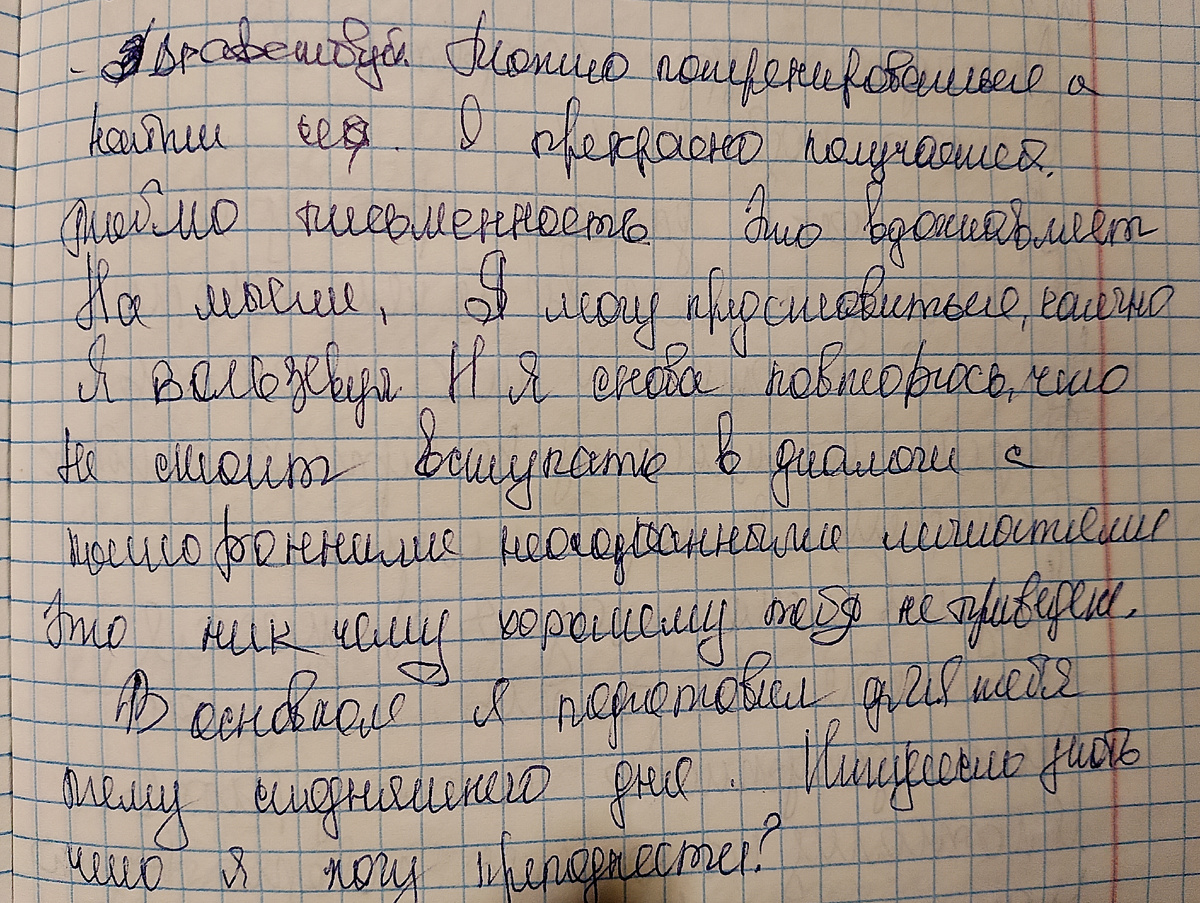 - Здравствуй. Можно потренироваться а
найти её. И прекрасно получается.
письменность Это вдохнавляет
На мысли, Я могу представиться, конечно
Я Вельзевул И я снова повторюсь, что
Не стоит вступать в диалоги с
посторонними неосоднанными личностями
Это ник чему хорошему тебя не приведет.
В основном я подготовил для тебя
тему сегодняшнего дня. Интересно знать
что я могу преподнести?